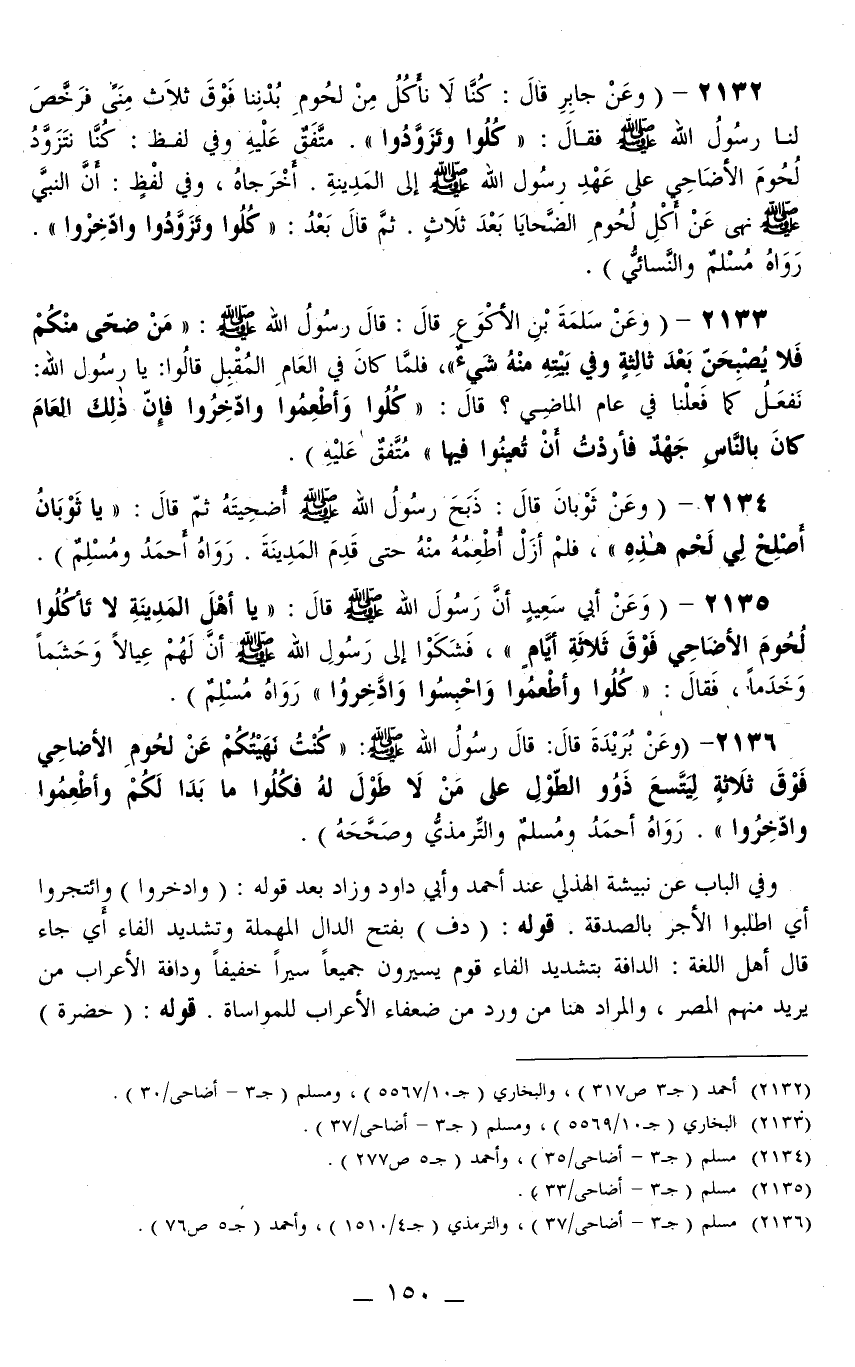 ٢١٣٢ – ( وعَنْ جابِرٍ قالَ : كُنَّا لَا نأكُلُ مِنْ لحُومِ بُدْنِنا فَوْقَ ثلاَث مِنَىً فرَخَّصَ
لنـا رسولُ الله ﷺ فقـالَ : « كُلُوا وتَزَوَّدُوا » . متَّفَقٌ عَلَيْهِ وفي لفـظ : كُنَّا نتَزَوَّدُ
لُحُومَ الأضَاحِي على عَهْدِ رسُول الله ﷺ إلى المَدِينةِ . أخْرَجاهُ ، وفي لفْظٍ : أنَّ النبيَّ
ﷺ نهى عَنْ أكْلِ لحُومِ الضَّحايَا بَعْدَ ثلَاثٍ . ثمَّ قالَ بَعْدُ : « كُلُوا وتَزَوَّدُوا وادّخِرُوا » .
رَوَاهُ مُسْلِمٌ والنَّسائيُّ ) .
٢١٣٣ – ( وَعَنْ سَلمَةَ بْنِ الأكْوَعِ قالَ : قالَ رسُولُ الله ﷺ : « مَنْ ضحّى منكُمْ
فَلا يُصْبِحَنّ بَعْدَ ثالِثةٍ وفي بَيْتِهِ منْهُ شَيءٌ»، فلمَّا كانَ في العَامِ المُقْبِل قالُوا: يا رسُول الله:
نَفعَـلُ كما فَعلْنا في عام الماضِـي ؟ قالَ : « كُلُوا وَأطْعِمُوا وادّخِرُوا فإنّ ذٰلِكَ العَامَ
كانَ بالنَّاسِ جَهْدٌ فأردْتُ أنْ تُعينُوا فيها » مُتَّفقٌ عَليْهِ ) .
٢١٣٤ – ( وعَنْ ثوْبانَ قالَ : ذَبَحَ رسُولُ الله ﷺ أُضحِيتَهُ ثمّ قالَ : « يا ثَوْبَانُ
أصْلِحْ لِي لَحْم هٰذِهِ » ، فلمْ أزَلْ أُطْعِمُهُ منْهُ حتى قَدِمَ المَدِينَةَ . رَوَاهُ أحمَدُ ومُسْلِمٌ ) .
٢١٣٥ – ( وَعَنْ أبي سَعِيدٍ أنَّ رَسُولَ الله ﷺ قالَ : « يا أهْلَ المَدِينَةِ لا تَأكُلُوا
لُحُومَ الأضَاحِي فَوْقَ ثَلاثَةِ أيَّامٍ » ، فَشكَوْا إلى رَسُولِ الله ﷺ أنَّ لَهُمْ عِيالاً وَحَشَماً
وَخَدَماً ، فَقالَ : « كُلُوا وأطْعمُوا وَاحْبِسُوا وَادَّخِروُا » رَوَاهُ مُسْلِمٌ ) .
٢١٣٦– (وعَنْ بُرَيْدَةَ قالَ: قالَ رسُولُ الله ﷺ: « كُنْتُ نَهَيْتُكُمْ عَنْ لحُومِ الأضاحِي
فَوْقَ ثَلَاثةٍ لِيَتَّسعَ ذَوُو الطّوْلِ على مَنْ لَا طَوْلَ لهُ فكُلُوا ما بَدَا لَكُمْ وأطْعِمُوا
وادّخِرُوا » . رَوَاهُ أحمَدُ ومُسلمٌ والتِّرمذيُّ وصَحَّحَهُ ) .
وفي الباب عن نبيشة الهذلي عند أحمد وأبي داود وزاد بعد قوله : ( وادخروا ) وائتجروا
أي اطلبوا الأجر بالصدقة . قوله : ( دف ) بفتح الدال المهملة وتشديد الفاء أي جاء
قال أهل اللغة : الدافة بتشديد الفاء قوم يسيرون جميعاً سيراً خفيفاً ودافة الأعراب من
يريد منهم المصر ، والمراد هنا من ورد من ضعفاء الأعراب للمواساة . قوله : ( حضرة )
(٢١٣٢) أحمد ( جـ٣ ص٣١٧ ) ، والبخاري ( جـ١٠/٥٥٦٧ ) ، ومسلم ( جـ٣ – أضاحى/٣٠ ) .
(٢١٣٣) البخاري ( جـ١٠/٥٥٦٩ ) ، ومسلم ( جـ٣ – أضاحى/٣٧ ) .
(٢١٣٤) مسلم ( جـ٣ – أضاحى/٣٥ ) ، وأحمد ( جـ٥ ص٢٧٧ ) .
(٢١٣٥) مسلم ( جـ٣ – أضاحى/٣٣ ) .
(٢١٣٦) مسلم ( جـ٣ – أضاحى/٣٧ ) ، والترمذي ( جـ٤/١٥١٠ ) ، وأحمد ( جـ٥ ص٧٦ ) .
_ ١٥٠ _